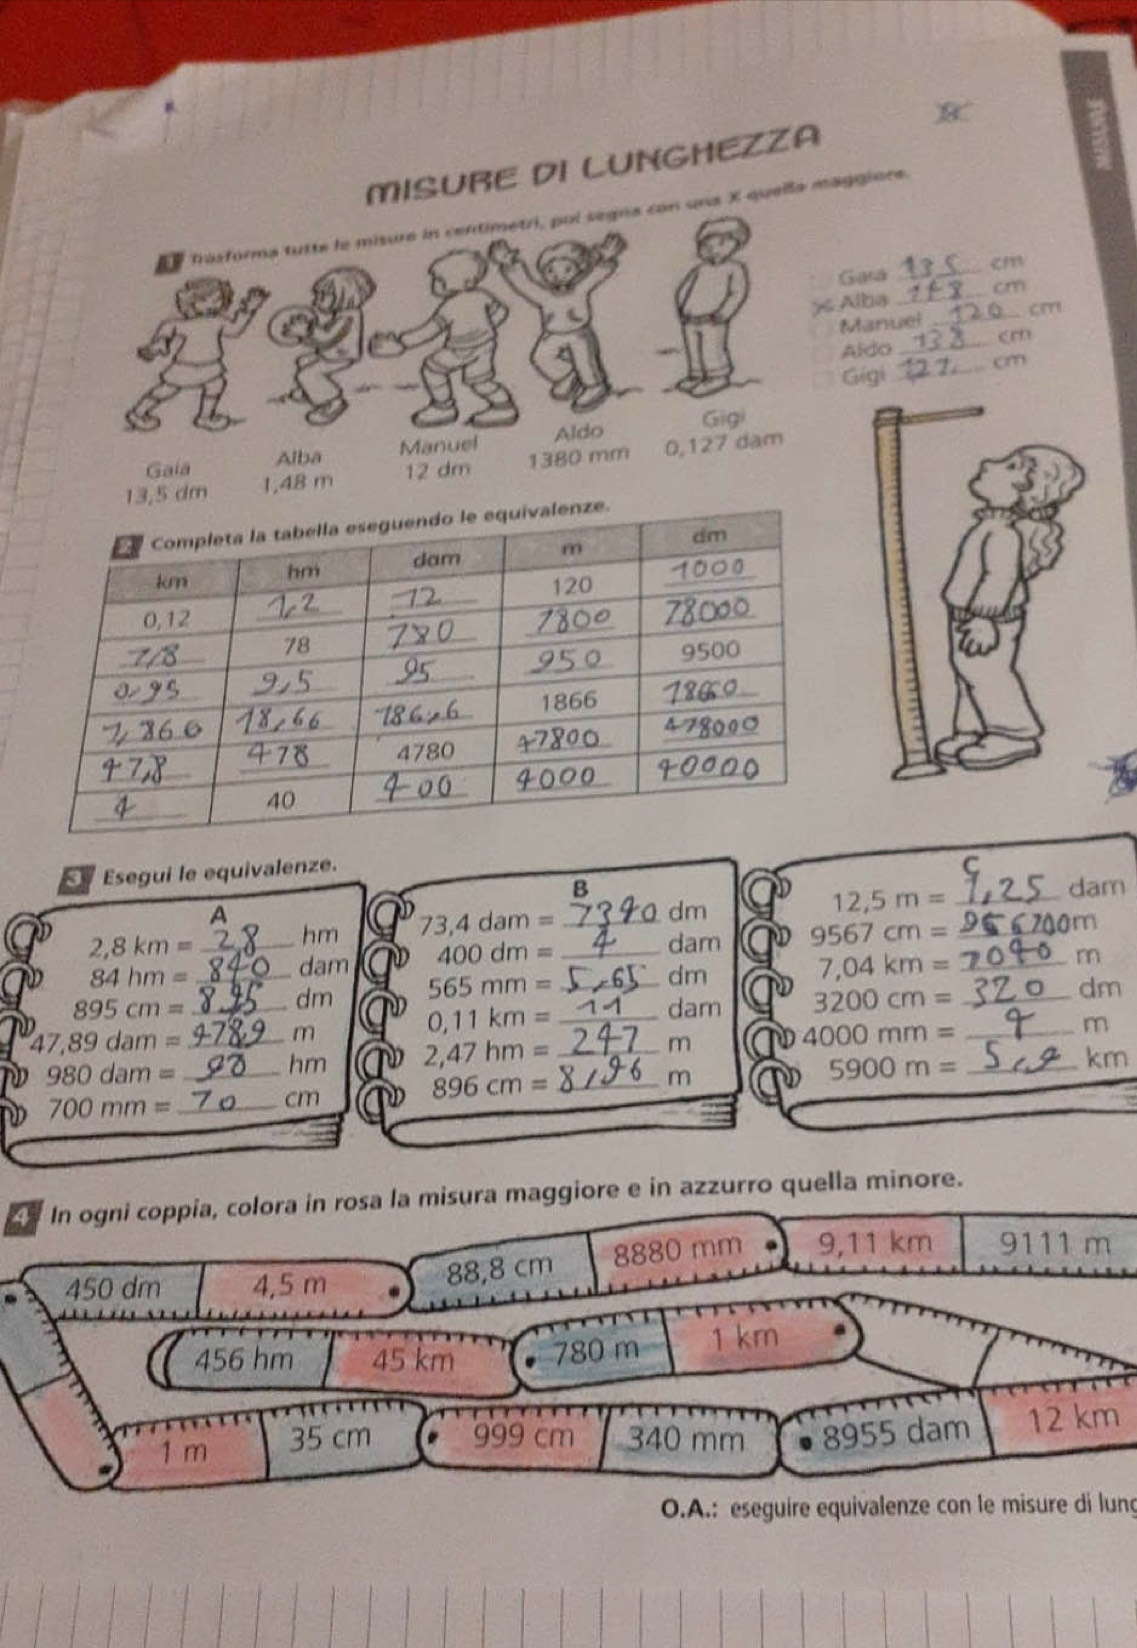 MISURE
MISURE DI LUNGHEZZA
1 Trasforma tutte le misure in centimetri, poi segna con una X quella maggiore.
Gaia 135 cm
X Alba 148 cm
Manuel 120 cm
Aldo 138 cm
Gigi 127 cm
Gaia Alba Manuel Aldo Gigi
13,5 dm 1,48 m 12 dm 1380 mm 0,127 dam
2 Completa la tabella eseguendo le equivalenze.
km hm dam m dm
0,12 1,2 12 120 1000
7,8 78 780 7800 78000
0,95 9,5 95 950 9500
1,866 18,66 186,6 1866 18660
47,8 478 4780 47800 478000
4 40 400 4000 40000
3 Esegui le equivalenze.
A
2,8 km = 28 hm
84 hm = 840 dam
895 cm = 89,5 dm
47,89 dam = 478,9 m
980 dam = 98 hm
700 mm = 70 cm
B
73,4 dam = 7340 dm
400 dm = 4 dam
565 mm = 5,65 dm
0,11 km = 11 dam
2,47 hm = 247 m
896 cm = 8,96 m
C
12,5 m = 1,25 dam
9567 cm = 956700 m
7,04 km = 7040 m
3200 cm = 320 dm
4000 mm = 4 m
5900 m = 5,9 km
4 In ogni coppia, colora in rosa la misura maggiore e in azzurro quella minore.
450 dm 4,5 m 88,8 cm 8880 mm 9,11 km 9111 m
456 hm 45 km 780 m 1 km
1 m 35 cm 999 cm 340 mm 8955 dam 12 km
O.A.: eseguire equivalenze con le misure di lung